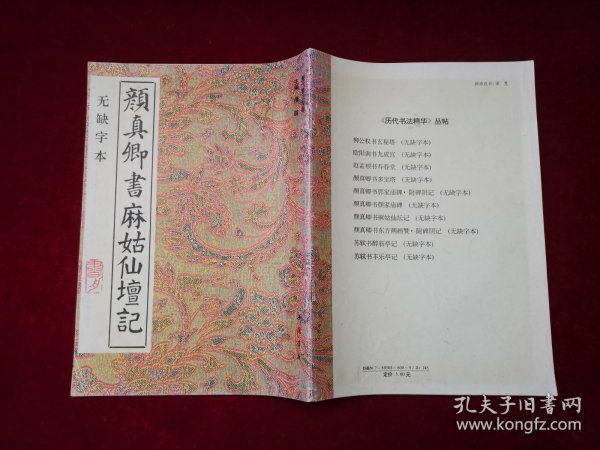 顔真卿書麻姑仙壇記
无缺字本
《历代书法精华》丛帖
柳公权书玄秘塔 (无缺字本)
欧阳询书九成宫 (无缺字本)
赵孟頫书寿春堂 (无缺字本)
颜真卿书多宝塔 (无缺字本)
颜真卿书郭家庙碑·附碑阴记 (无缺字本)
颜真卿书颜家庙碑 (无缺字本)
颜真卿书麻姑仙坛记 (无缺字本)
颜真卿书东方朔画赞·附碑阴记 (无缺字本)
苏轼书醉翁亭记 (无缺字本)
苏轼书丰乐亭记 (无缺字本)
定价 5.80元
孔夫子旧書网
www.kongfz.com